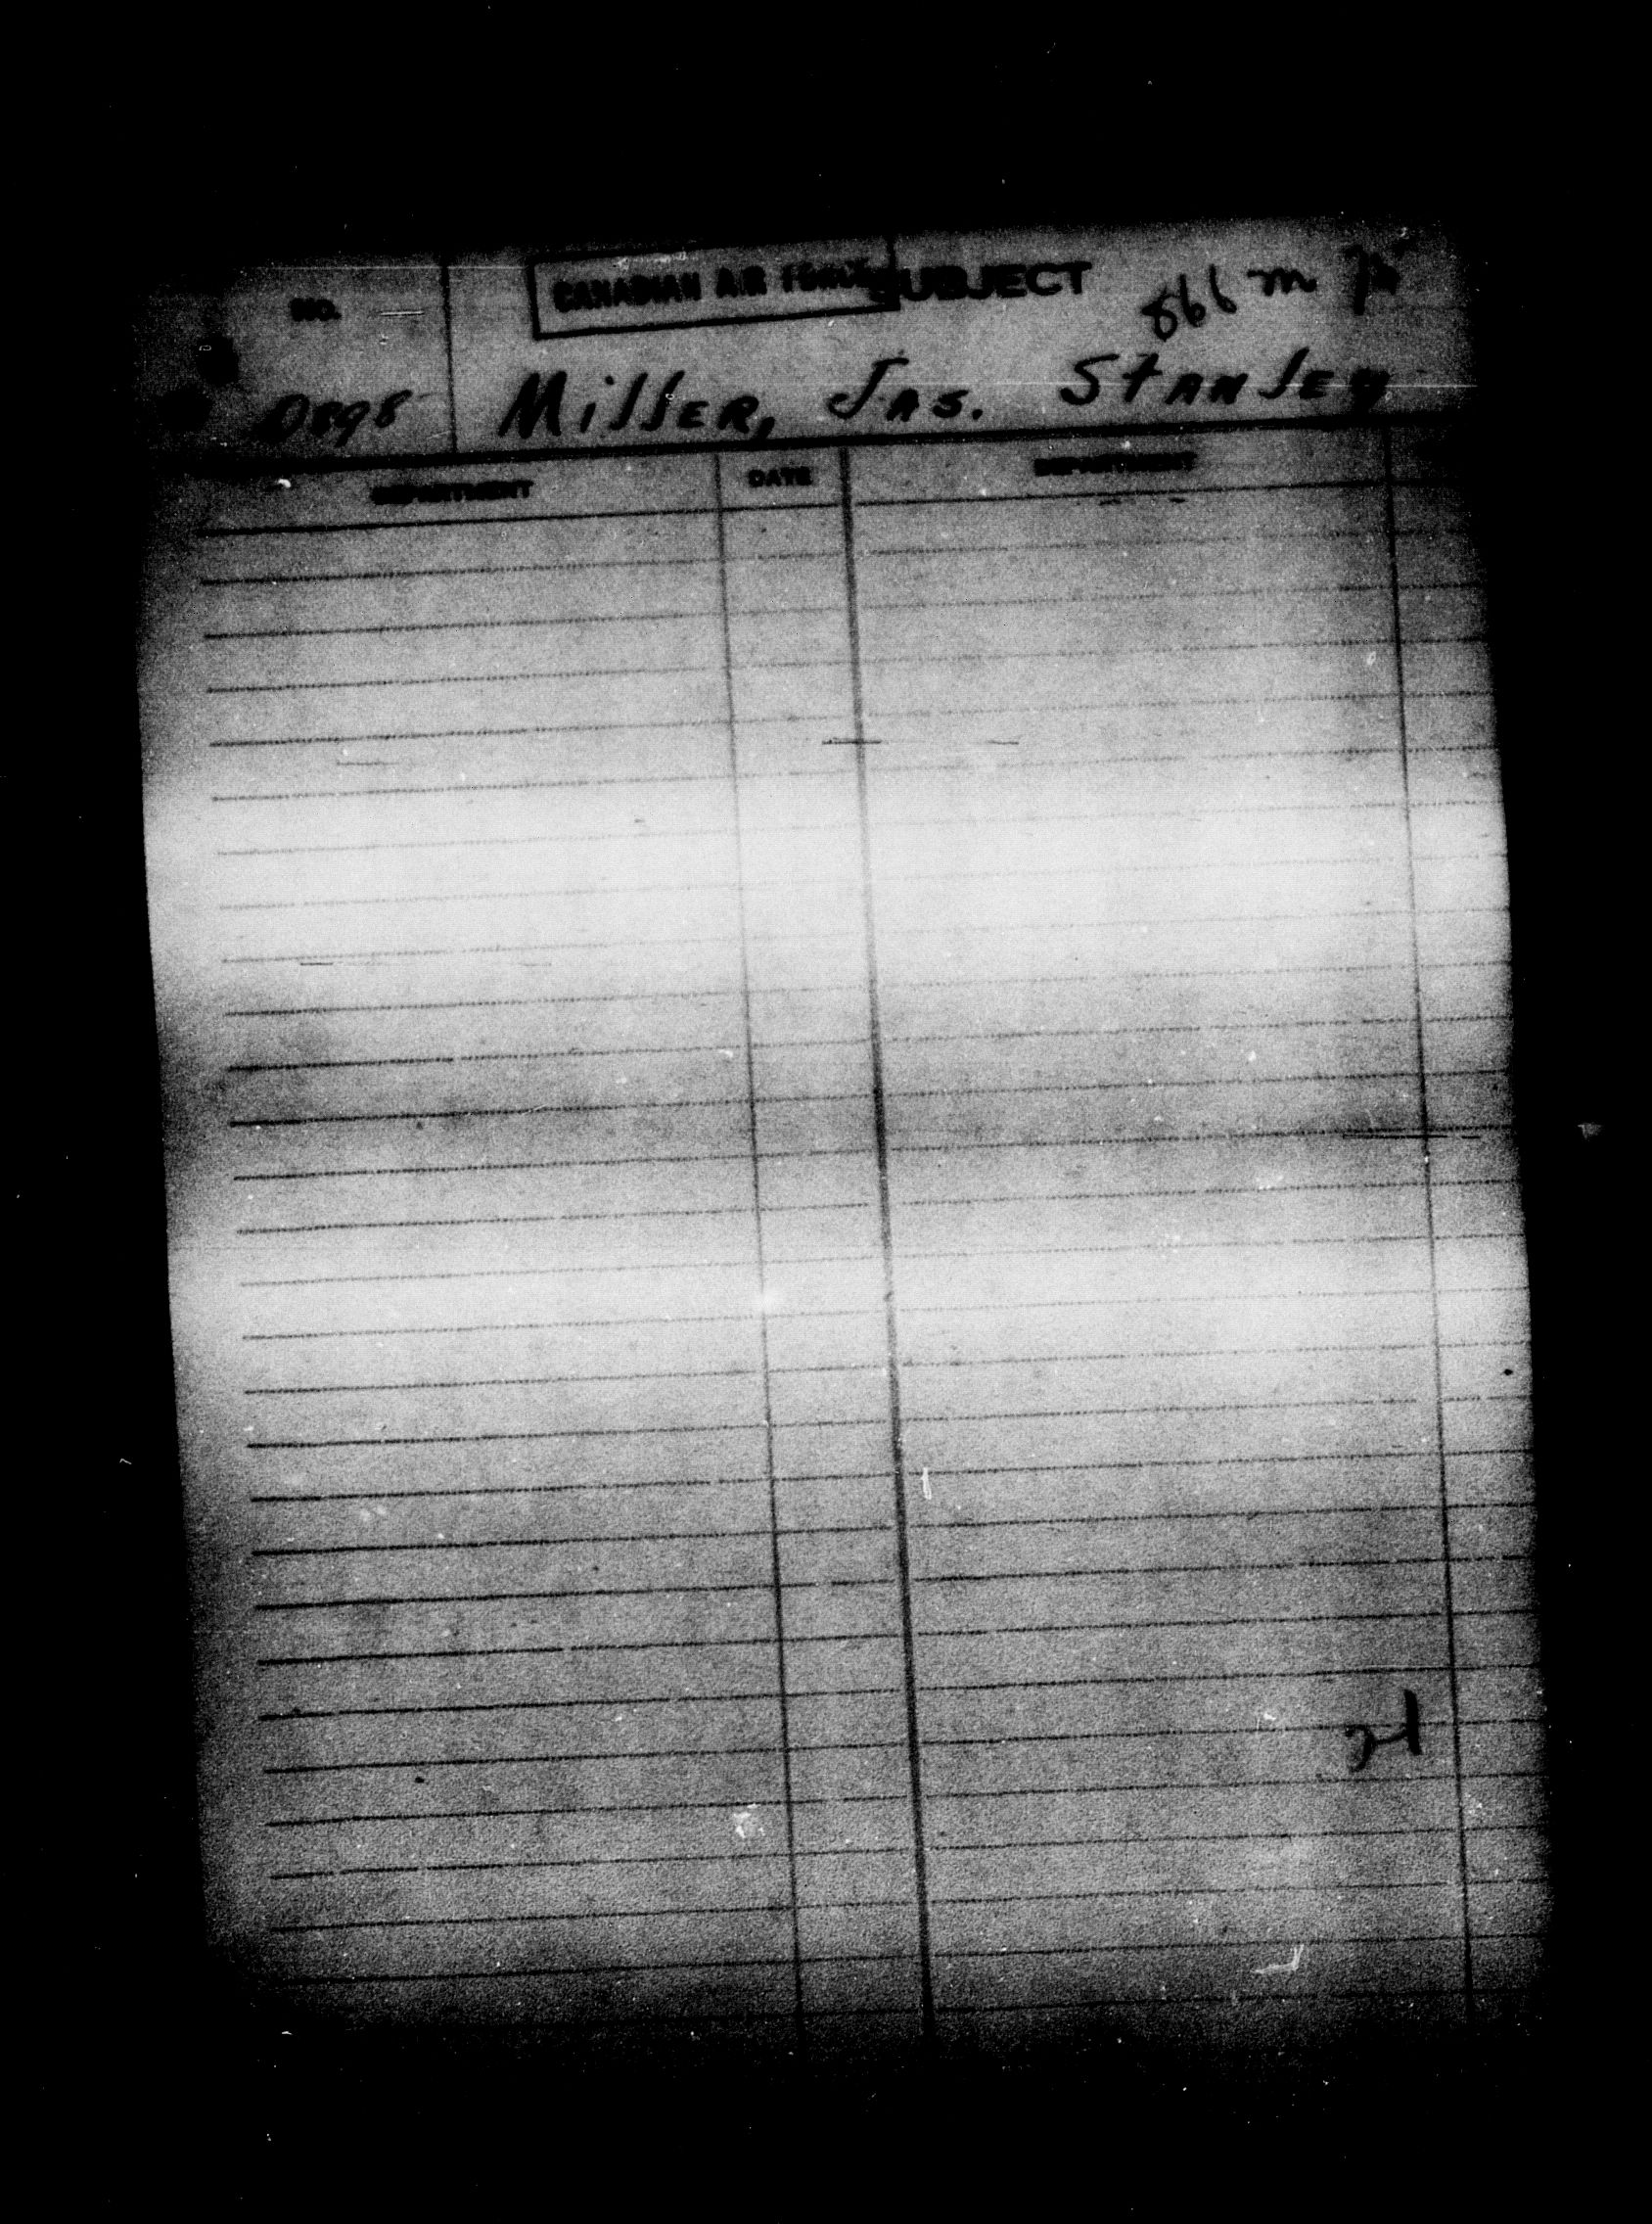 NO. CANADIAN AIR FORCE SUBJECT 866 m
0898 Miller, Jas. Stanley
DEPARTMENT DATE DEPARTMENT